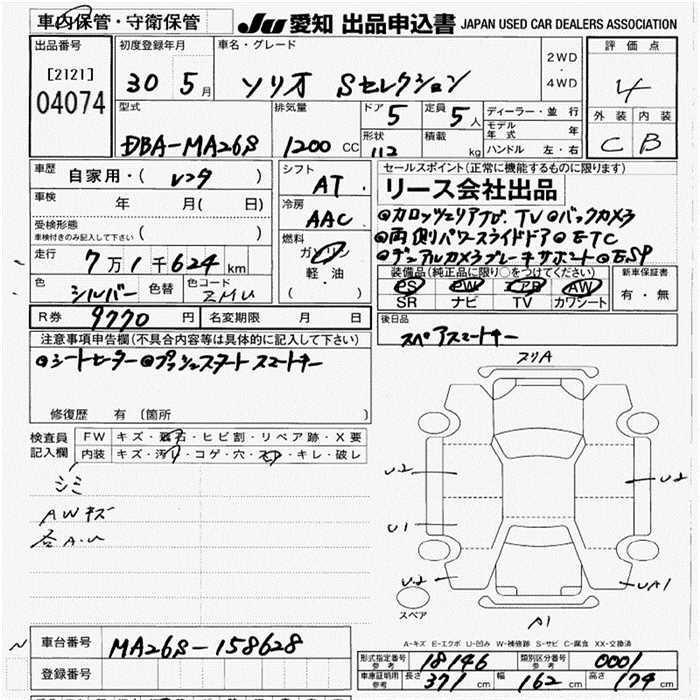 車内保管・守衛保管 JU 愛知 出品申込書 JAPAN USED CAR DEALERS ASSOCIATION
出品番号 初度登録年月 車名・グレード 2WD・4WD 評価点
[2121] 04074 30 5月 ソリオ Sセレクション 4
型式 排気量 ドア 5 定員 5人 ディーラー・並行 外装 内装
DBA-MA26S 1200 CC 形状 積載 kg モデル年式 年 C B
ハンドル 左・右
車歴 自家用・( レンタ ) シフト AT セールスポイント(正常に機能するものに限ります)
車検 年 月( 日) 冷房 AAC リース会社出品
受検形態 車検付きのみ記入して下さい ( ) ◎カロッツェリアナビ・TV ◎バックカメラ
走行 7万1千624km 燃料 ガソリン 軽油 ( ・ ) ◎両側パワースライドドア ◎ETC
◎デュアルカメラブレーキサポート ◎ESP
色 シルバー 色替 色コード ZMU 装備品(純正品に限り○をつけてください) 新車保証書
PS PW エアB AW 有・無
SR ナビ TV カワシート
R券 9770円 名変期限 月 日 後日品
スペアスマートキー
注意事項申告欄(不具合内容等は具体的に記入して下さい)
◎シートヒーター ◎プッシュスタート スマートキー
修復歴 有 (箇所 )
検査員記入欄 FW キズ・飛石・ヒビ割・リペア跡・X要
内装 キズ・汚れ・コゲ・穴・スレ・キレ・破レ
シミ
AWキズ
各A.U
スリA
U2 U2
U1
U2 UA1
スペア A1
A-キズ E-エクボ U-凹み W-補修跡 S-サビ C-腐食 XX-交換済
車台番号 MA26S-158628
登録番号
形式指定番号 参考 18146 類別区分番号 参考 0001
車庫証明用 参考 長さ 371cm 幅 162cm 高さ 174cm